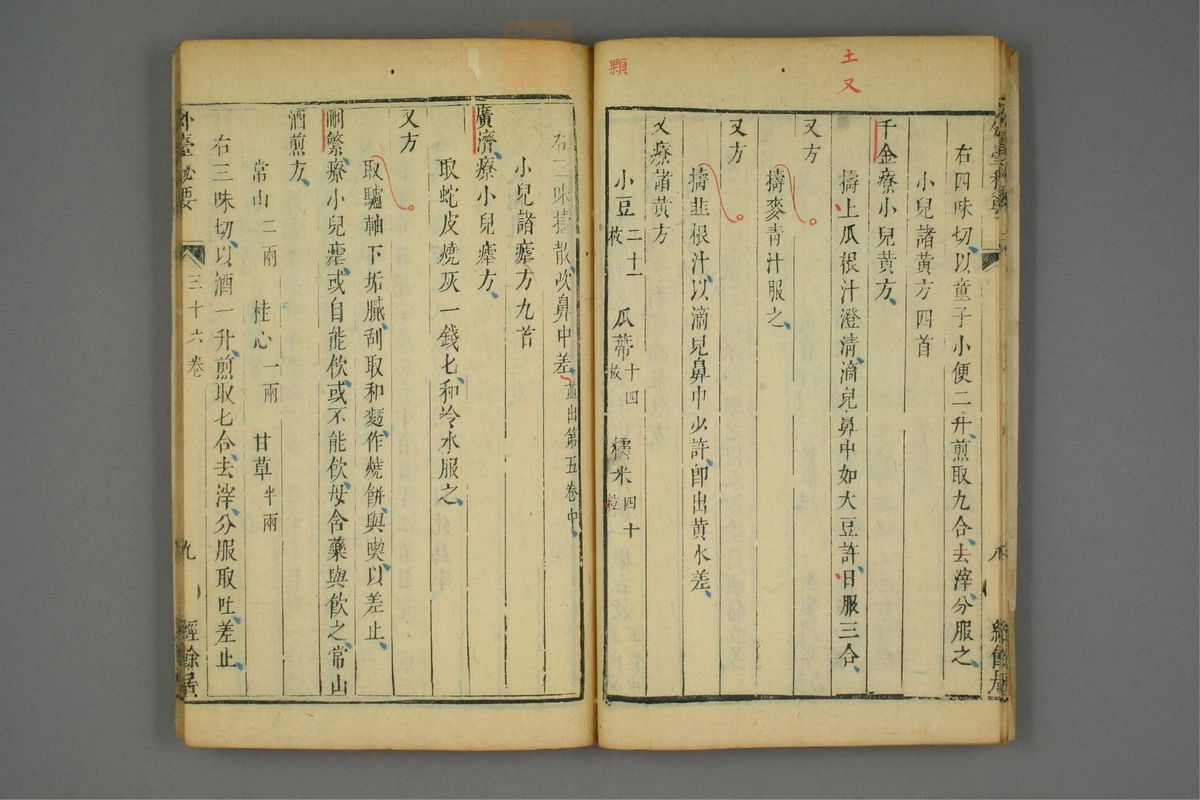 土又
顆
右四味切以童子小便二升煎取九合去滓分服之
小兒諸黃方四首
千金療小兒黃方
擣土瓜根汁澄清滴兒鼻中如大豆許日服三合
又方
擣麥青汁服之
又方
擣韭根汁以滴兒鼻中少許即出黃水差
又療諸黃方
小豆二十一枚 瓜蔕十四枚 糯米四十粒
右三味擣散吹鼻中差並出第五卷中
小兒諸瘧方九首
廣濟療小兒瘧方
取蛇皮燒灰一錢匕和冷水服之
又方
取驢軸下垢膩刮取和麵作燒餅與喫以差止
劉繁療小兒瘧或自能飲或不能飲母含藥與飲之常山
酒煎方
常山二兩 桂心一兩 甘草半兩
右三味切以酒一升煎取七合去滓分服取吐差止
外臺秘要 三十六卷 九 經餘居